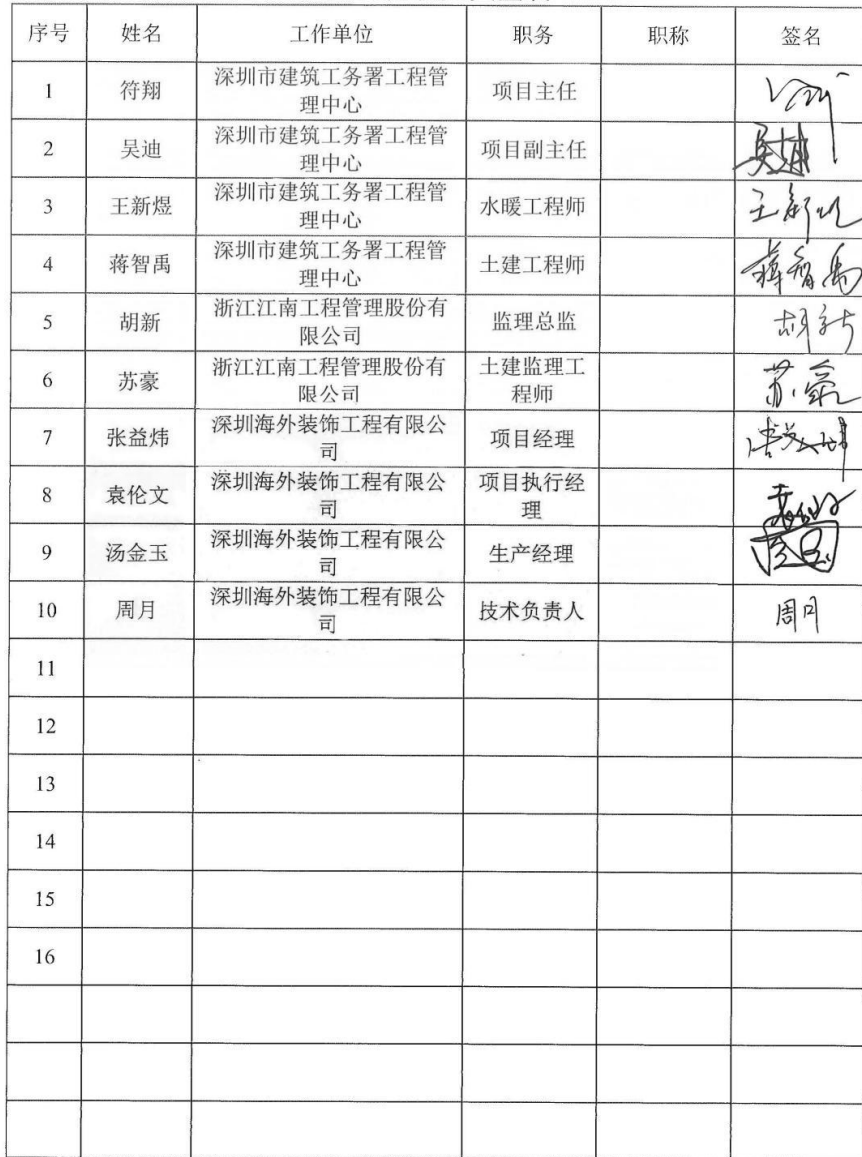 序号 姓名 工作单位 职务 职称 签名
1 符翔 深圳市建筑工务署工程管 项目主任
理中心
2 吴迪 深圳市建筑工务署工程管 项目副主任
理中心
3 王新煜 深圳市建筑工务署工程管 水暖工程师 王新煜
理中心
4 蒋智禹 深圳市建筑工务署工程管 土建工程师 蒋智禹
理中心
5 胡新 浙江江南工程管理股份有 监理总监 胡新
限公司
6 苏豪 浙江江南工程管理股份有 土建监理工 苏豪
限公司 程师
7 张益炜 深圳海外装饰工程有限公 项目经理
司
8 袁伦文 深圳海外装饰工程有限公 项目执行经
司 理
9 汤金玉 深圳海外装饰工程有限公 生产经理
司
10 周月 深圳海外装饰工程有限公 技术负责人 周月
司
11
12
13
14
15
16